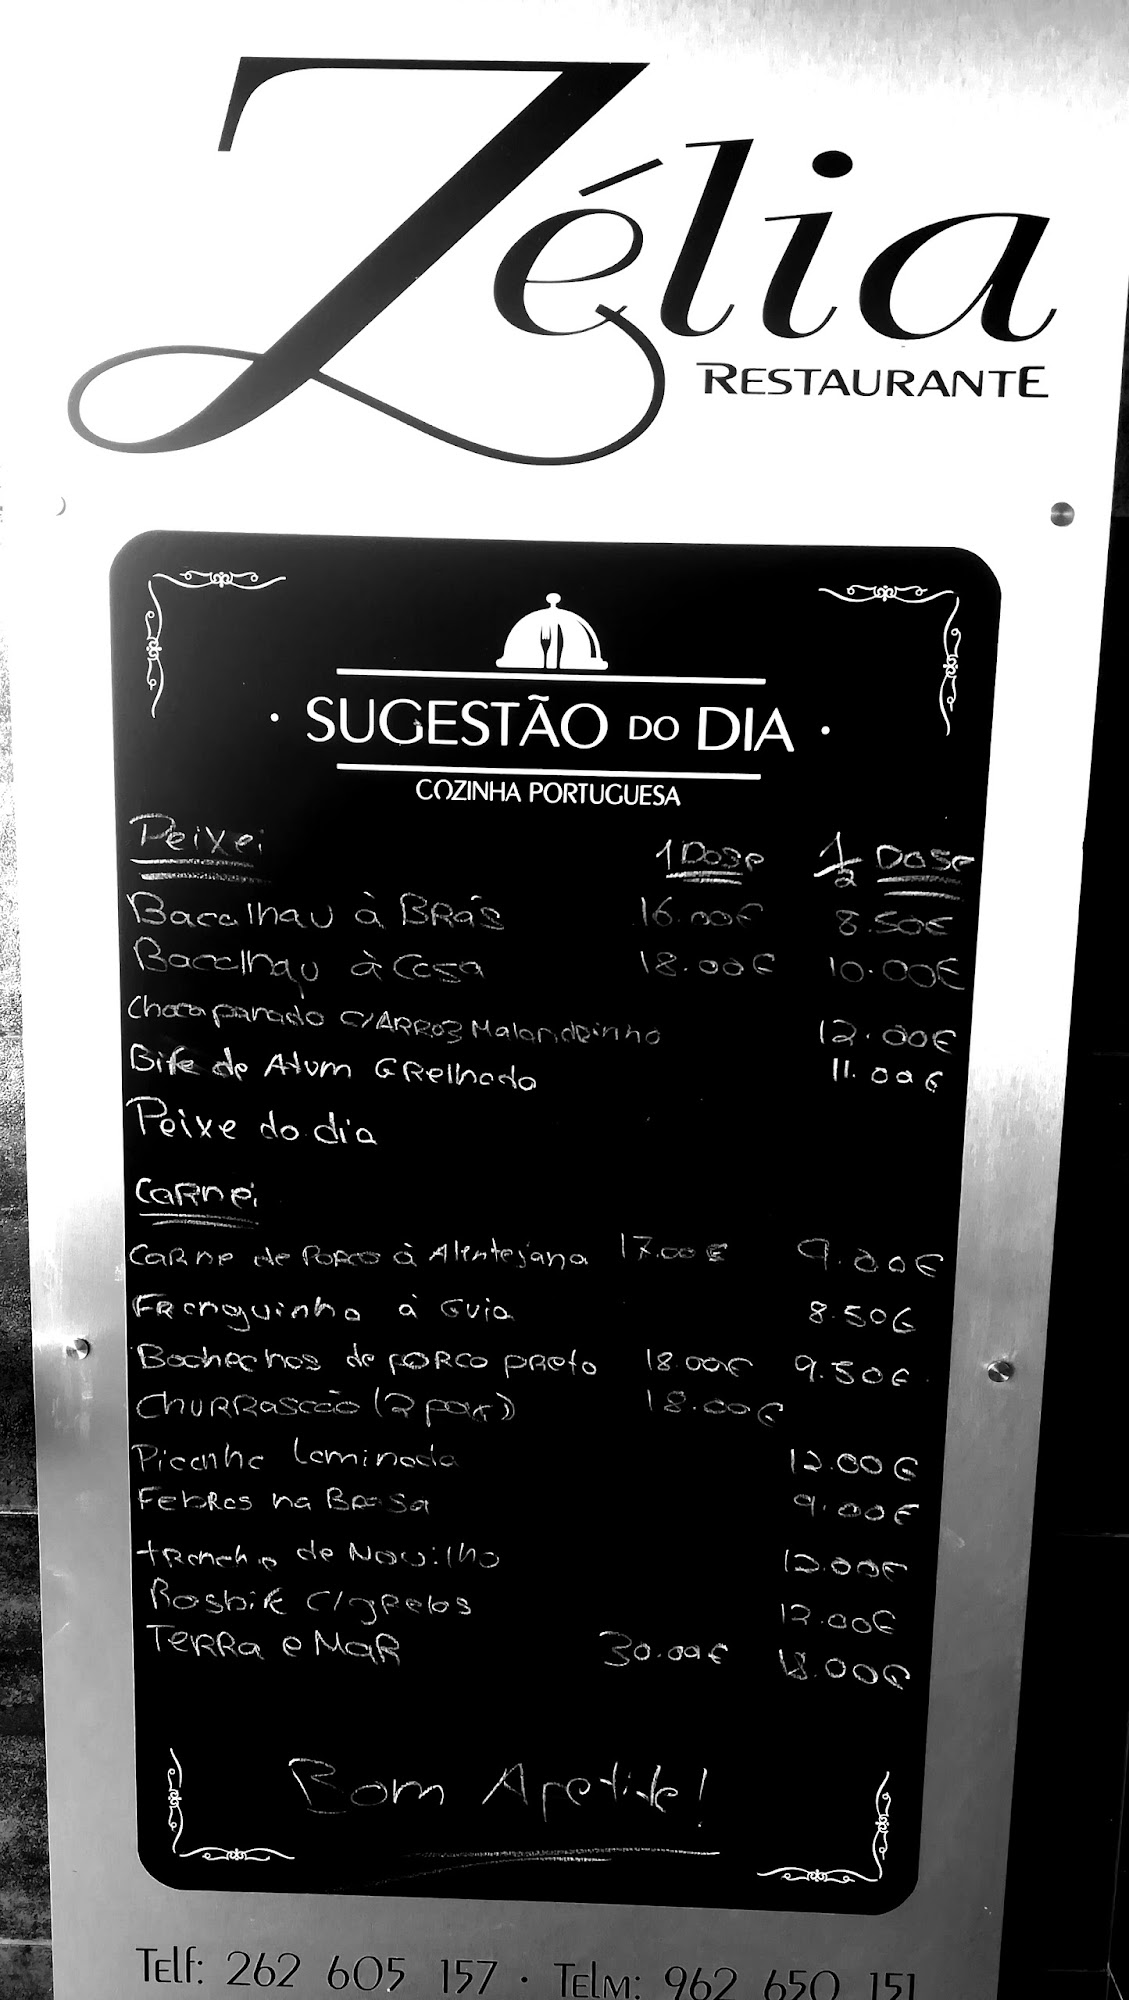 Zélia
RESTAURANTE
· SUGESTÃO DO DIA ·
COZINHA PORTUGUESA
Peixe: 1 Dose 1/2 Dose
Bacalhau à BRás 16.00€ 8.50€
Bacalhau à Casa 18.00€ 10.00€
Choco panado C/ARRoz Malandrinho 12.00€
Bife de Atum GRelhado 11.00€
Peixe do dia
CaRne:
CaRne de PoRco à Alentejana 17.00€ 9.00€
FRanguinho à Guia 8.50€
Bochechas de poRco pReto 18.00€ 9.50€
ChuRRascão (2 pax) 18.00€
Picanha laminada 12.00€
FebRas na BRasa 9.00€
tRancha de Novilho 12.00€
Rosbife C/gRelos 12.00€
TeRRa e MaR 30.00€ 18.00€
Bom Apetite!
Telf: 262 605 157 · Telm: 962 650 151